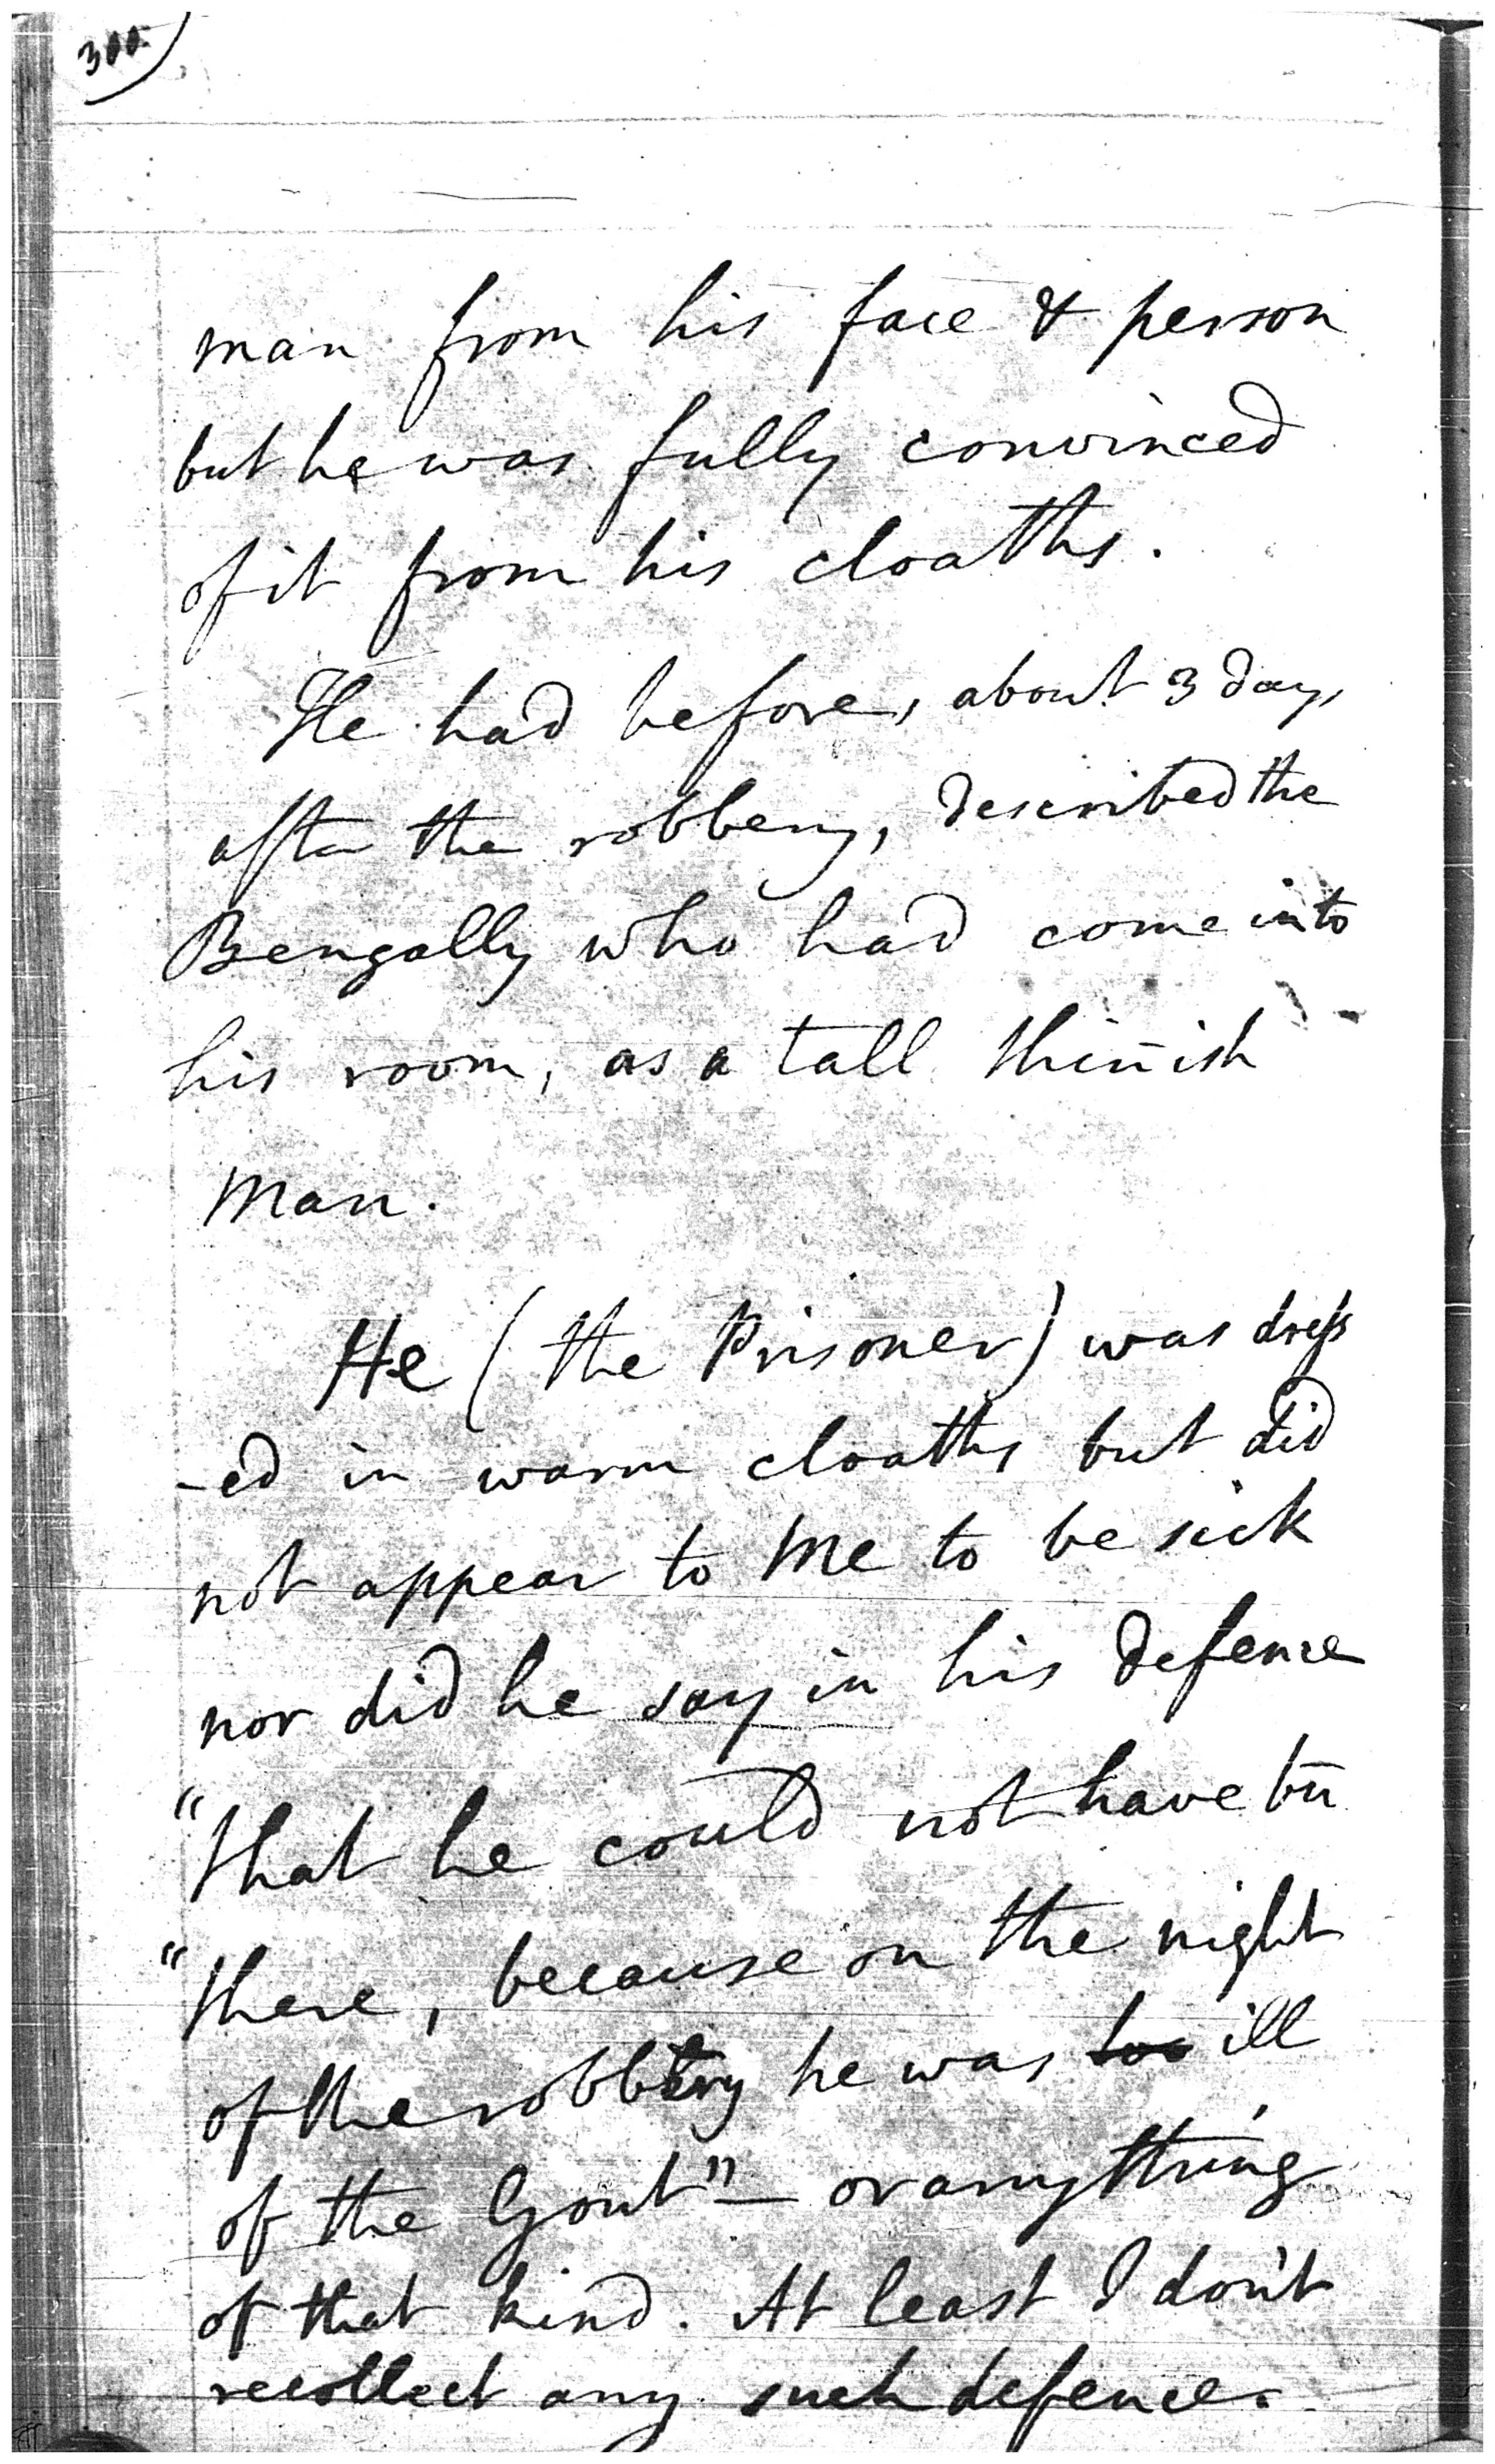 300
man from his face & person
but he was fully convinced
of it from his cloaths.
He had before, about 3 days
after the robbery, described the
Bengally who had come into
his room, as a tall thin̄ish
Man.
He (the Prisoner) was dress
-ed in warm cloaths but did
not appear to Me to be sick
nor did he say in his defence
"that he could not have bn̄
"there, because on the night
of the robbery he was too ill
of the Gout" — or any thing
of that kind. At least I don't
recollect any such defence.